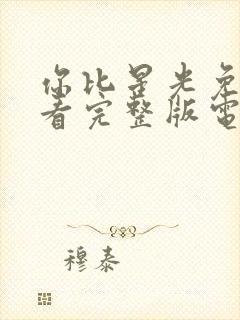 你比星光免
看完整版電
穆泰